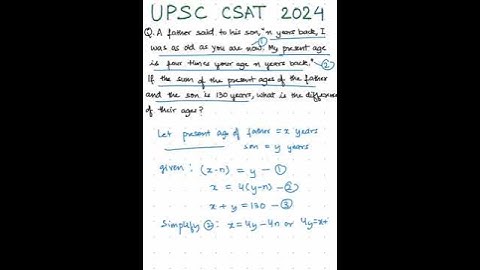 UPSC CSAT 2024
Q. A father said to his son, "n years back, I
was as old as you are now. My present age
is four times your age n years back."
If the sum of the present ages of the father
and the son is 130 years, what is the difference
of their ages?
Let present age of father = x years
son = y years
given: (x-n) = y — ①
x = 4(y-n) — ②
x + y = 130 — ③
Simplify ②: x = 4y - 4n or 4y = x+
① ②